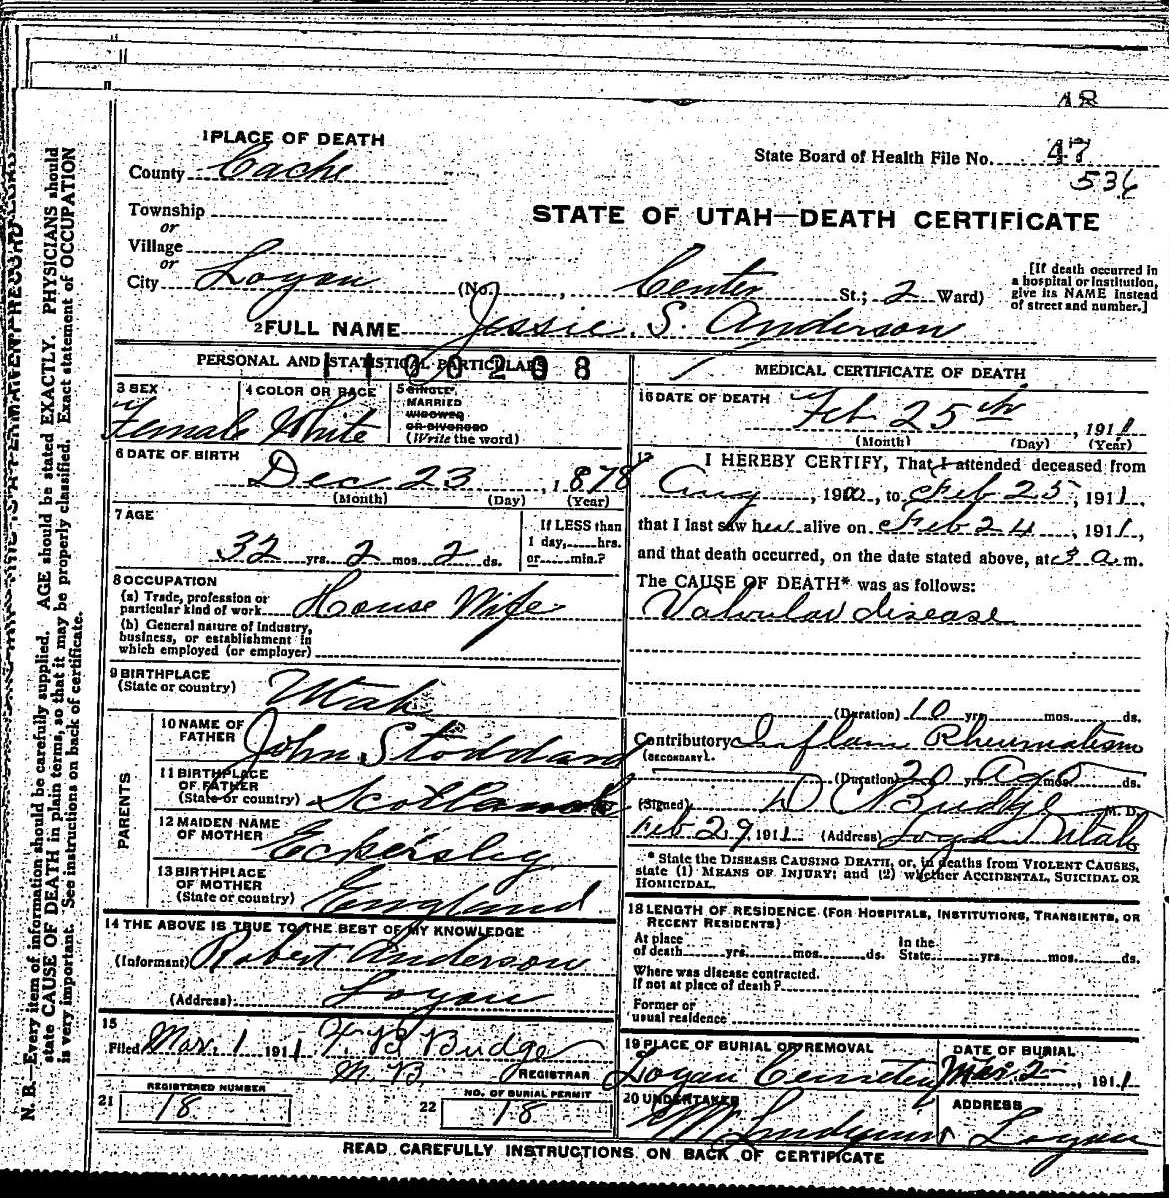 N. B.—Every item of information should be carefully supplied. AGE should be stated EXACTLY. PHYSICIANS should
state CAUSE OF DEATH in plain terms, so that it may be properly classified. Exact statement of OCCUPATION
is very important. See instructions on back of certificate.
1 PLACE OF DEATH
County Cache
State Board of Health File No. 47
536
Township
or
Village
or
City Logan
STATE OF UTAH—DEATH CERTIFICATE
(No. , Center St.; 2 Ward)
[If death occurred in
a hospital or institution,
give its NAME instead
of street and number.]
2 FULL NAME Jessie S. Anderson
PERSONAL AND STATISTICAL PARTICULARS
1100208
3 SEX
Female
4 COLOR OR RACE
White
5 SINGLE,
MARRIED
WIDOWED
OR DIVORCED
(Write the word)
6 DATE OF BIRTH
Dec 23, 1878
(Month) (Day) (Year)
7 AGE
32 yrs. 2 mos. 2 ds.
If LESS than
1 day, hrs.
or min.?
8 OCCUPATION
(a) Trade, profession or
particular kind of work House Wife
(b) General nature of Industry,
business, or establishment in
which employed (or employer)
9 BIRTHPLACE
(State or country) Utah
PARENTS
10 NAME OF
FATHER John Stoddard
11 BIRTHPLACE
OF FATHER
(State or country) Scotland
12 MAIDEN NAME
OF MOTHER Eckersley
13 BIRTHPLACE
OF MOTHER
(State or country) England
14 THE ABOVE IS TRUE TO THE BEST OF MY KNOWLEDGE
(Informant) Robert Anderson
(Address) Logan
15
Filed Mar. 1 1911 Budge
REGISTRAR
21 REGISTERED NUMBER
18
22 NO. OF BURIAL PERMIT
18
MEDICAL CERTIFICATE OF DEATH
16 DATE OF DEATH
Feb 25th, 1911
(Month) (Day) (Year)
17 I HEREBY CERTIFY, That I attended deceased from
Aug, 1900, to Feb 25, 1911,
that I last saw her alive on Feb 24, 1911,
and that death occurred, on the date stated above, at 3 a.m.
The CAUSE OF DEATH* was as follows:
Valvular disease
(Duration) 10 yrs. mos. ds.
Contributory Inflam Rheumatism
(SECONDARY)
(Duration) 20 yrs. ago mos. ds.
(Signed) D C Budge M. D.
Feb 29, 1911 (Address) Logan Utah
* State the DISEASE CAUSING DEATH, or, in deaths from VIOLENT CAUSES,
state (1) MEANS OF INJURY; and (2) whether ACCIDENTAL, SUICIDAL OR
HOMICIDAL.
18 LENGTH OF RESIDENCE (FOR HOSPITALS, INSTITUTIONS, TRANSIENTS, OR
RECENT RESIDENTS)
At place
of death yrs. mos. ds.
In the
State yrs. mos. ds.
Where was disease contracted.
If not at place of death?
Former or
usual residence
19 PLACE OF BURIAL OR REMOVAL
Logan Cemetery
DATE OF BURIAL
Mar. 2, 1911
20 UNDERTAKER
ADDRESS
Logan
READ CAREFULLY INSTRUCTIONS ON BACK OF CERTIFICATE